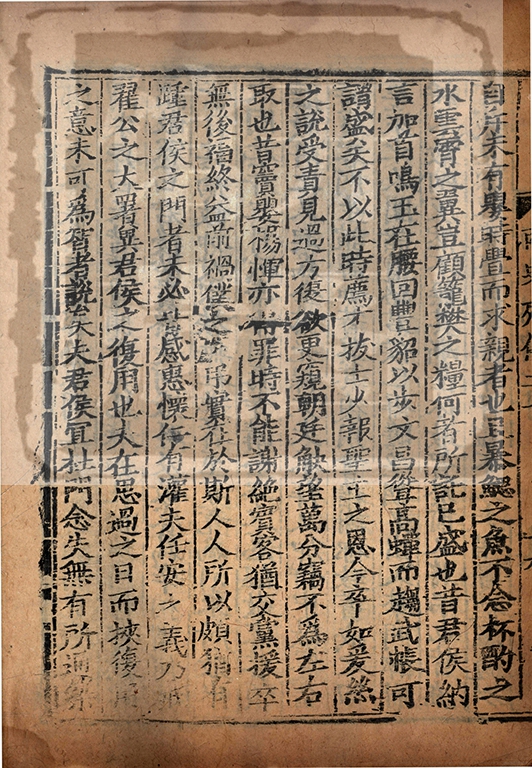 自序未有與時豊而求親者也且暴鰓之魚不念杯酌之
水雲霄之翼豈顧籠樊之糧何者所託已盛也昔君侯納
言加首鳴玉在腰回豐貂以步文昌聳高蟬而趨武帳可
謂盛矣不以此時薦才拔士少報聖主之恩今卒如爰絲
之說受責見過方復欲更窺朝廷觖望萬分竊不為左右
取也昔竇嬰楊惲亦 罪時不能謝絶賓客猶交黨援卒
無後福終益前禍僕之 弔實在於斯人人所以頗猶有
踵君侯之門者未必皆感惠懷仁有灌夫任安之義乃
翟公之大署與君侯之復用也夫在思過之日而挾復用
之意未可為智者說矣夫君侯宜杜門念失無有所通